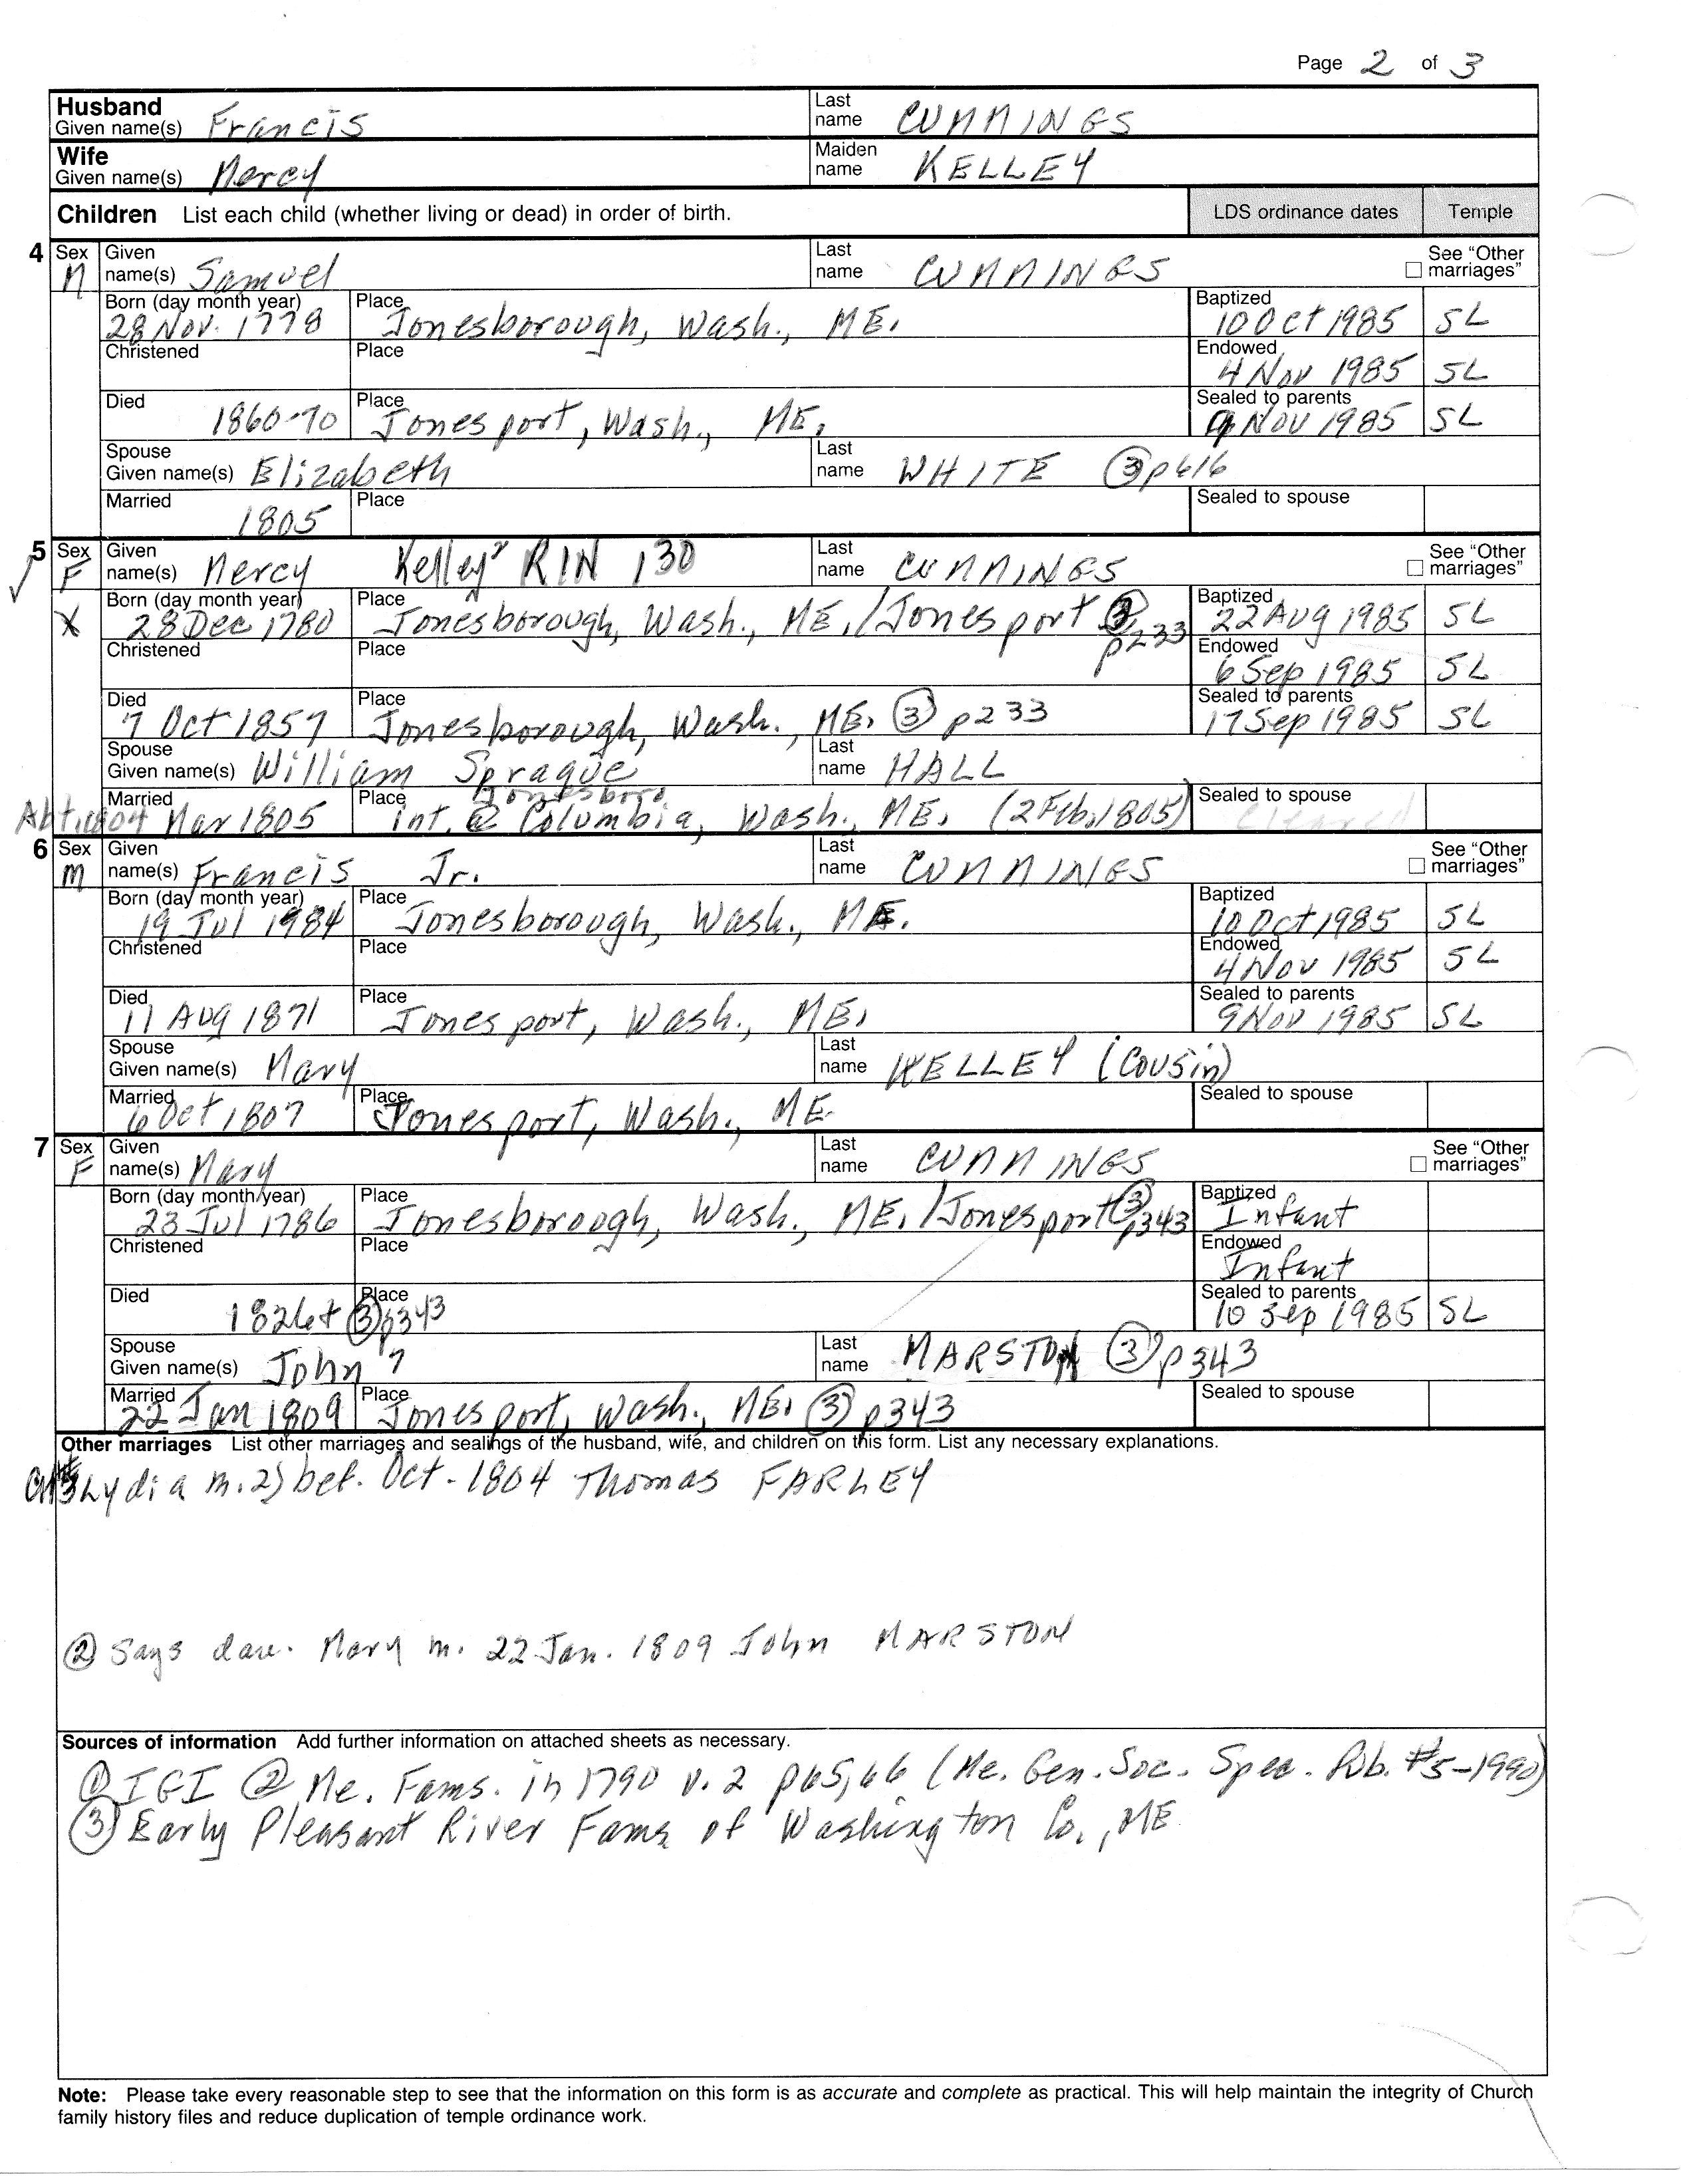 Page 2 of 3
Husband Given name(s) Francis Last name CUMMINGS
Wife Given name(s) Mercy Maiden name KELLEY
Children List each child (whether living or dead) in order of birth. LDS ordinance dates Temple
4 Sex M Given name(s) Samuel Last name CUMMINGS See “Other marriages”
Born (day month year) 28 Nov. 1778 Place Jonesborough, Wash., ME. Baptized 10 Oct 1985 SL
Christened Place Endowed 4 Nov 1985 SL
Died 1860-70 Place Jonesport, Wash., ME. Sealed to parents 9 Nov 1985 SL
Spouse Given name(s) Elizabeth Last name WHITE ③ p616
Married 1805 Place Sealed to spouse
5 Sex F Given name(s) Mercy Kelley" RIN 130 Last name CUMMINGS See “Other marriages”
X Born (day month year) 28 Dec 1780 Place Jonesborough, Wash., ME. / Jonesport ③ p233 Baptized 22 Aug 1985 SL
Christened Place Endowed 6 Sep 1985 SL
Died 7 Oct 1857 Place Jonesborough, Wash., ME. ③ p233 Sealed to parents 17 Sep 1985 SL
Spouse Given name(s) William Sprague Last name HALL
Abt. 1804 Married Mar 1805 Place Jonesboro int. @ Columbia, Wash., ME. (2 Feb. 1805) Sealed to spouse Cleared
6 Sex M Given name(s) Francis Jr. Last name CUMMINGS See “Other marriages”
Born (day month year) 19 Jul 1984 Place Jonesborough, Wash., ME. Baptized 10 Oct 1985 SL
Christened Place Endowed 4 Nov 1985 SL
Died 11 Aug 1871 Place Jonesport, Wash., ME. Sealed to parents 9 Nov 1985 SL
Spouse Given name(s) Mary Last name KELLEY (Cousin)
Married 6 Oct 1807 Place Jonesport, Wash., ME. Sealed to spouse
7 Sex F Given name(s) Mary Last name CUMMINGS See “Other marriages”
Born (day month year) 23 Jul 1786 Place Jonesborough, Wash., ME. / Jonesport ③ p343 Baptized Infant
Christened Place Endowed Infant
Died 1826+ ③ p343 Place Sealed to parents 10 Sep 1985 SL
Spouse Given name(s) John ? Last name MARSTON ③ p343
Married 22 Jan 1809 Place Jonesport, Wash., ME. ③ p343 Sealed to spouse
Other marriages List other marriages and sealings of the husband, wife, and children on this form. List any necessary explanations.
#3 Lydia m. 2) bef. Oct. 1804 Thomas FARLEY
② Says dau. Mary m. 22 Jan. 1809 John MARSTON
Sources of information Add further information on attached sheets as necessary.
① IGI ② Me. Fams. in 1790 v. 2 p65,66 (Me. Gen. Soc. Spec. Pub. #5-1990)
③ Early Pleasant River Fams of Washington Co., ME
Note: Please take every reasonable step to see that the information on this form is as accurate and complete as practical. This will help maintain the integrity of Church
family history files and reduce duplication of temple ordinance work.